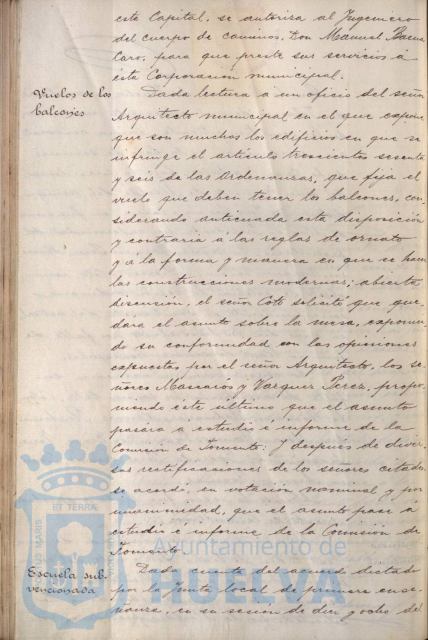 esta Capital, se autoriza al Ingeniero
del cuerpo de caminos, Don Manuel Baena
Caro, para que preste sus servicios á
ésta Corporación municipal.
Vuelos de los
balcones
Dada lectura á un oficio del señor
Arquitecto municipal en el que expone
que son muchos los edificios en que se
infringe el artículo trescientos sesenta
y seis de las Ordenanzas, que fija el
vuelo que deben tener los balcones, con-
siderando anticuada esta disposición
y contraria á las reglas de ornato
y á la forma y manera en que se hacen
las construcciones modernas; abierta
discusión, el señor Coto solicitó que que-
dara el asunto sobre la mesa, exponien-
do su conformidad con las opiniones
expuestas por el señor Arquitecto, los se-
ñores Mascarós y Vazquez Perez, propo-
niendo éste último que el asunto
pasára á estudio é informe de la
Comisión de Fomento. Y después de diver-
sas rectificaciones de los señores citados
se acordó, en votación nominal y por
unanimidad, que el asunto pase á
estudio é informe de la Comisión de
Fomento.
Escuela sub-
vencionada
Dada cuenta del acuerdo dictado
por la Junta local de primera ense-
ñanza, en su sesión de diez y ocho del
ET TERRAE
MARIS
Ayuntamiento de
HUELVA